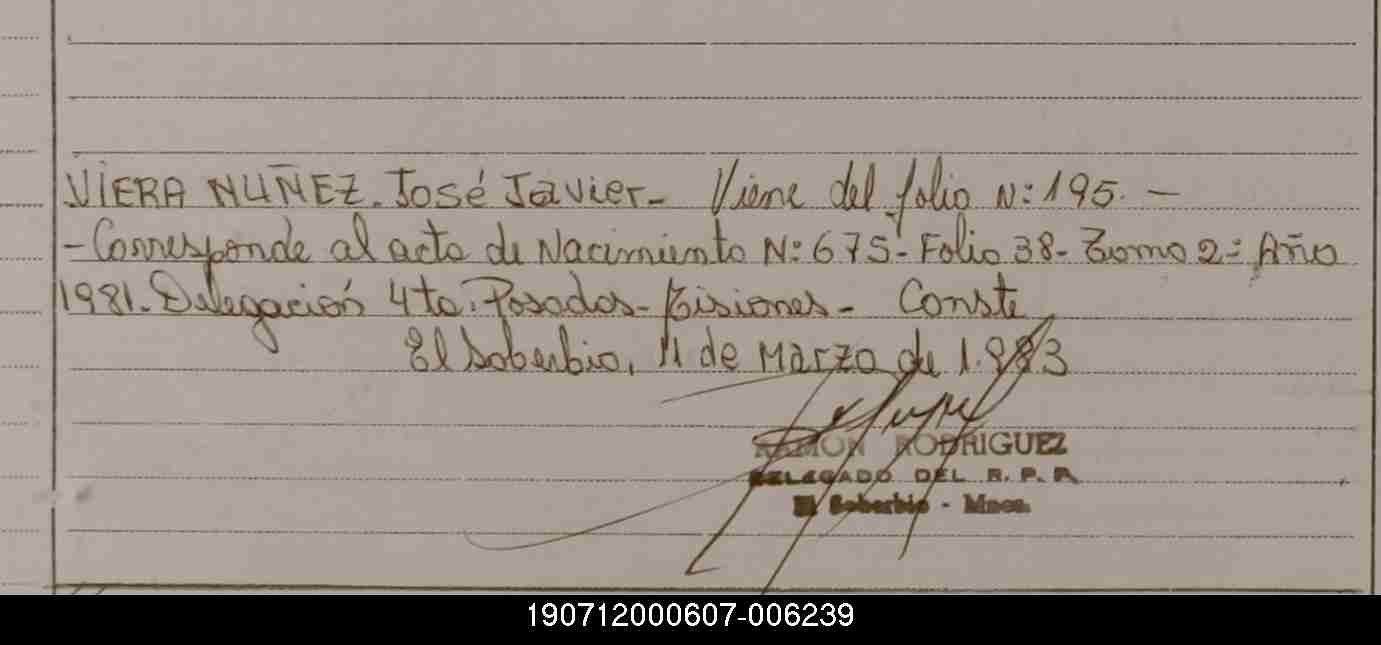 VIERA NUÑEZ. José Javier- Viene del folio N: 195. -
- Corresponde al acta de Nacimiento N: 675- Folio 38- Tomo 2- Año
1981. Delegación 4ta. Posadas- Misiones- Conste
El Soberbio, 11 de Marzo de 1.983
RAMON RODRIGUEZ
DELEGADO DEL R. P. P.
El Soberbio - Mnes.
190712000607-006239